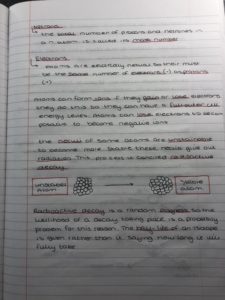 Neutrons
↳ the total number of protons and neutrons in
an atom is called its mass number
Electrons
↳ atoms are electrically neutral so their must
be the same number of electrons (-) as protons
(+)
Atoms can form ions if they gain or lose electrons
they do this so they can have a full outer
energy level. Atoms can lose electrons to become
positive to become negative ions
the nuclei of some atoms are unstable so
to become more stable these nuclei give out
radiation. This process is called radioactive
decay.
unstable atom
stable atom
Radioactive decay is a random process so the
likelihood of a decay taking place is a probability
problem for this reason. The half life of an isotope
is given rather than saying how long it will
fully take